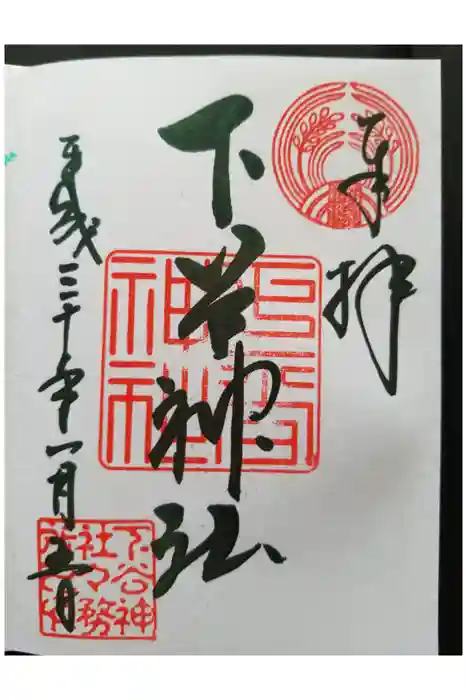 奉拝
下谷神社
平成三十年一月五日
下谷神社
下谷神社々務所之印